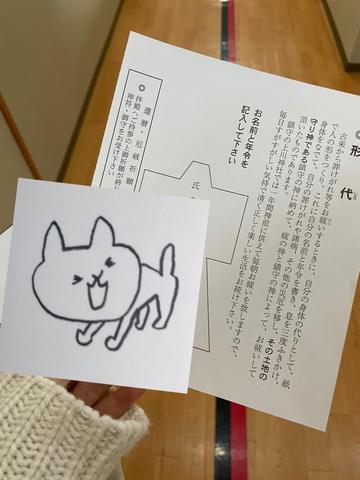 ◎形代
古来から罪けがれ等をお祓いするときに、自分の身体の代りとして、紙
で人の形をつくり、これに自分の名前と年令を書き、息を三度ふきかけ、
身体をなでて、自分の罪けがれや諸病、その他の災厄を移し、その土地の
守り神である鎮守の神に納めて、祓の神と鎮守の神によって、お祓いして
頂いたものであります。
鎮守の上川神社では一年間神前に供えて毎朝お祓いを致しますので、
毎日すがすがしい気持で清く正しく楽しい生活をお続け下さい。
お名前と年令を
記入して下さい
氏
◎還暦・厄祓祈願
拝殿へご持参の上御祈願が終り
神符・御守をお受け下さい